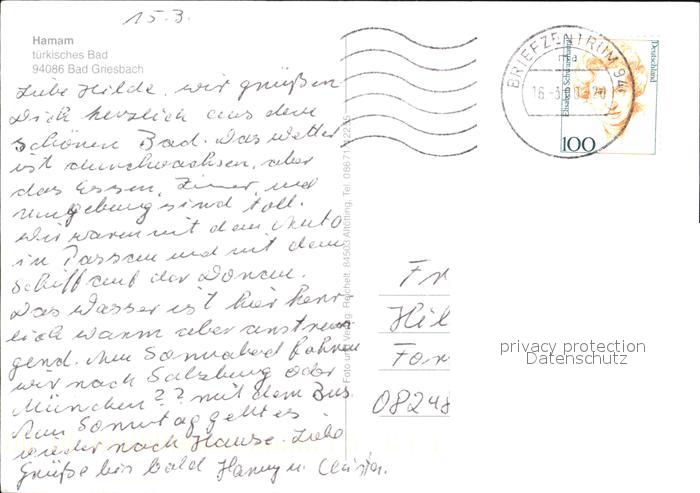 15.3.
Hamam
türkisches Bad
94086 Bad Griesbach
Liebe Hilde, wir grüßen
Dich herzlich aus dem
schönen Bad. Das Wetter
ist durchwachsen, aber
das Essen, Zimer, und
Umgebung sind toll.
Wir waren mit dem Auto
in Passau und mit dem
Schiff auf der Donau.
Das Wasser ist hier herr-
lich warm aber anstren-
gend. Am Sonnabend fahren
wir nach Salzburg oder
München?? mit dem Bus.
Am Sonntag geht es
wieder nach Hause. Liebe
Grüße bis bald Hanny u.
Foto und Verlag: Reichelt, 84503 Altötting, Tel. 08671
BRIEFZENTRUM 94
16.-3.
Deutschland
Elisabeth Schwarzhaupt
100
Fr
Hil
For
08248
privacy protection
Datenschutz